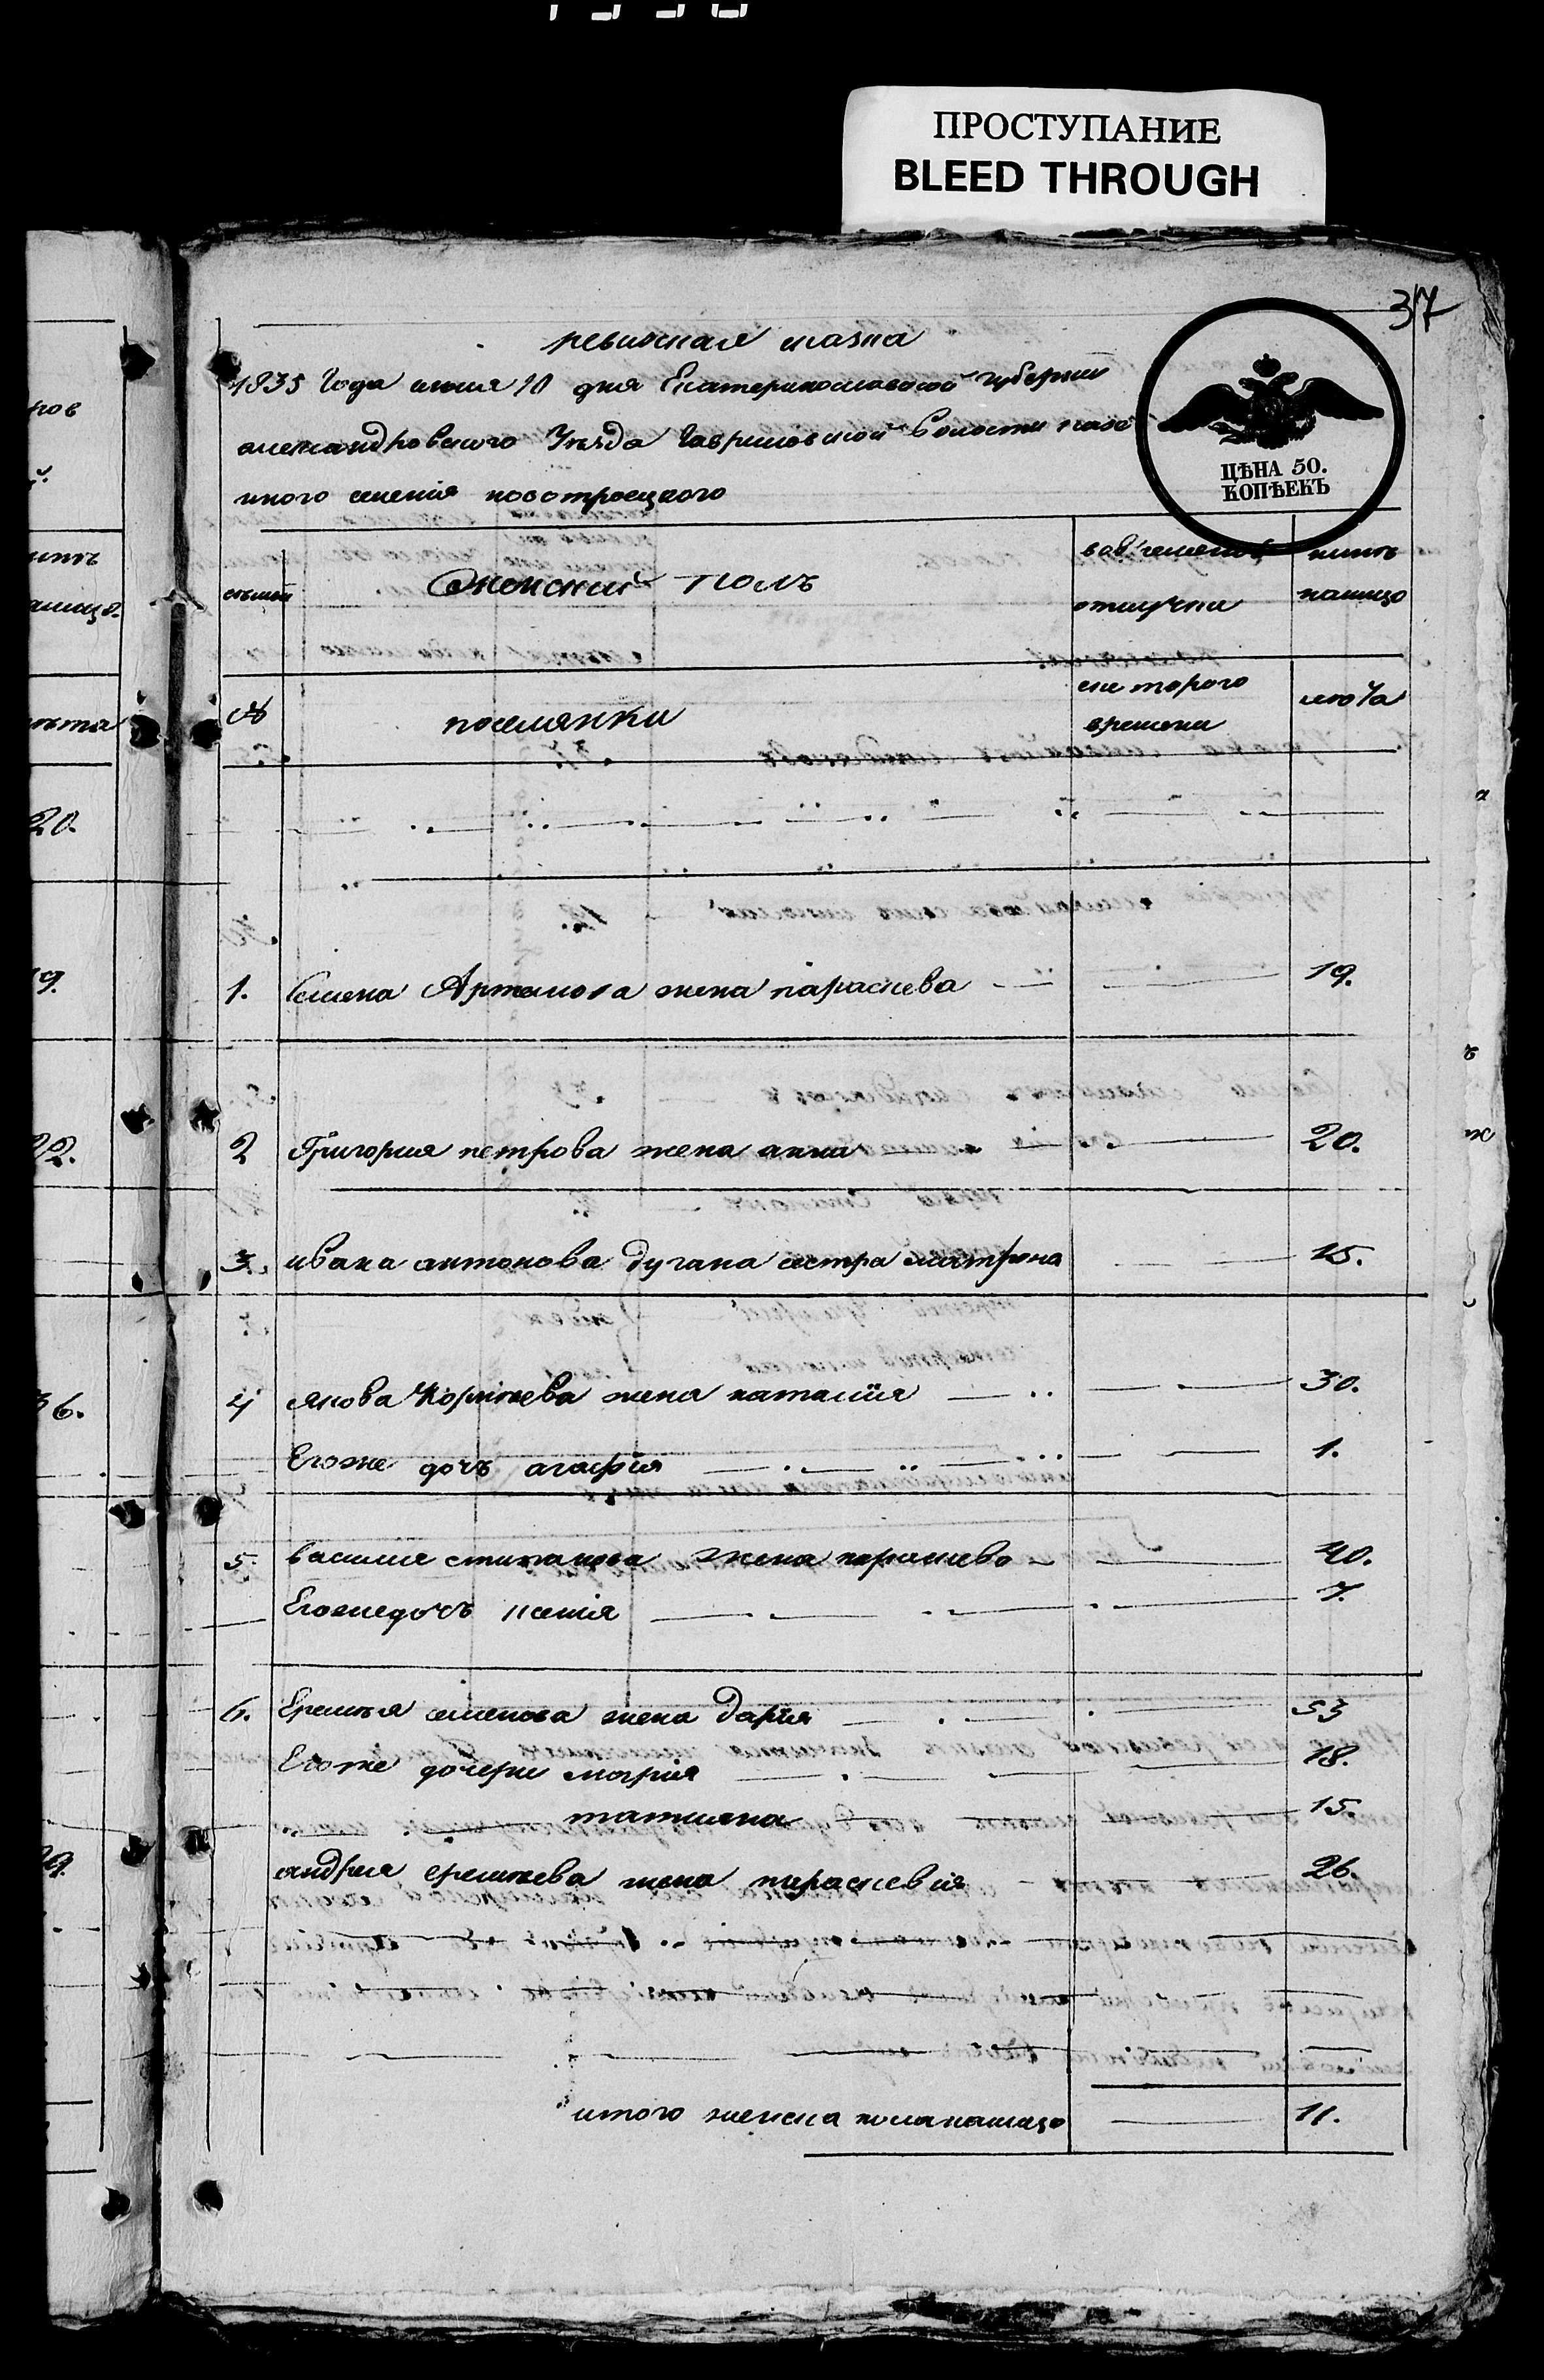 ПРОСТУПАНИЕ
BLEED THROUGH
37
ревижская сказка
1835 года июня 10 дня Екатеринославской губернии
александровского Уезда Гавриловской Волости казе
нного селения новотроецкого
ЦѢНА 50.
КОПѢЕКЪ
семьи
Женский полъ
вовремен
отлучки
нынъ
налицо
№
поселянки
ско торого
времени
лета
1. Семена Артемова жена параскева 19.
2 Григория петрова жена анна 20.
3. ивана антонова дугана сестра матрона 15.
4 якова Корнѣева жена наталия 30.
Егоже дочъ агафия 1.
5. василия степанова жена параскева 40.
Егоже дочъ ксения 7.
6. Еремѣя семенова жена дария 53
Егоже дочери мария 18.
татияна 15.
андрея еремѣева жена параскевия 26.
итого женска пола налицо 11.
ров
нынъ
налицо.
лѣта
20.
19.
22.
36.